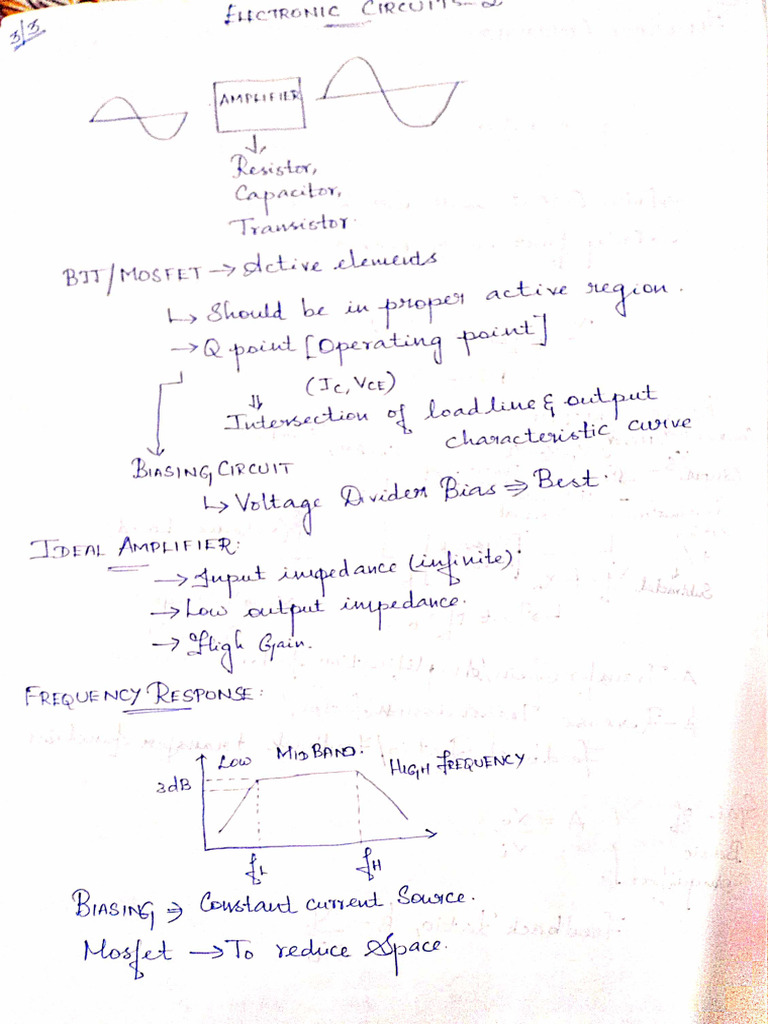 3/3
ELECTRONIC CIRCUITS-2
AMPLIFIER
Resistor,
Capacitor,
Transistor.
BJT/MOSFET → Active elements
↳ Should be in proper active region.
→ Q point [Operating point]
(IC, VCE)
⇓ Intersection of loadline & output
characteristic curve
BIASING CIRCUIT
↳ Voltage Divider Bias ⇒ Best.
IDEAL AMPLIFIER:
→ Input impedance (infinite).
→ Low output impedance.
→ High Gain.
FREQUENCY RESPONSE:
LOW MIDBAND. HIGH FREQUENCY
3dB
fL fH
BIASING ⇒ Constant current Source.
Mosfet → To reduce Space.